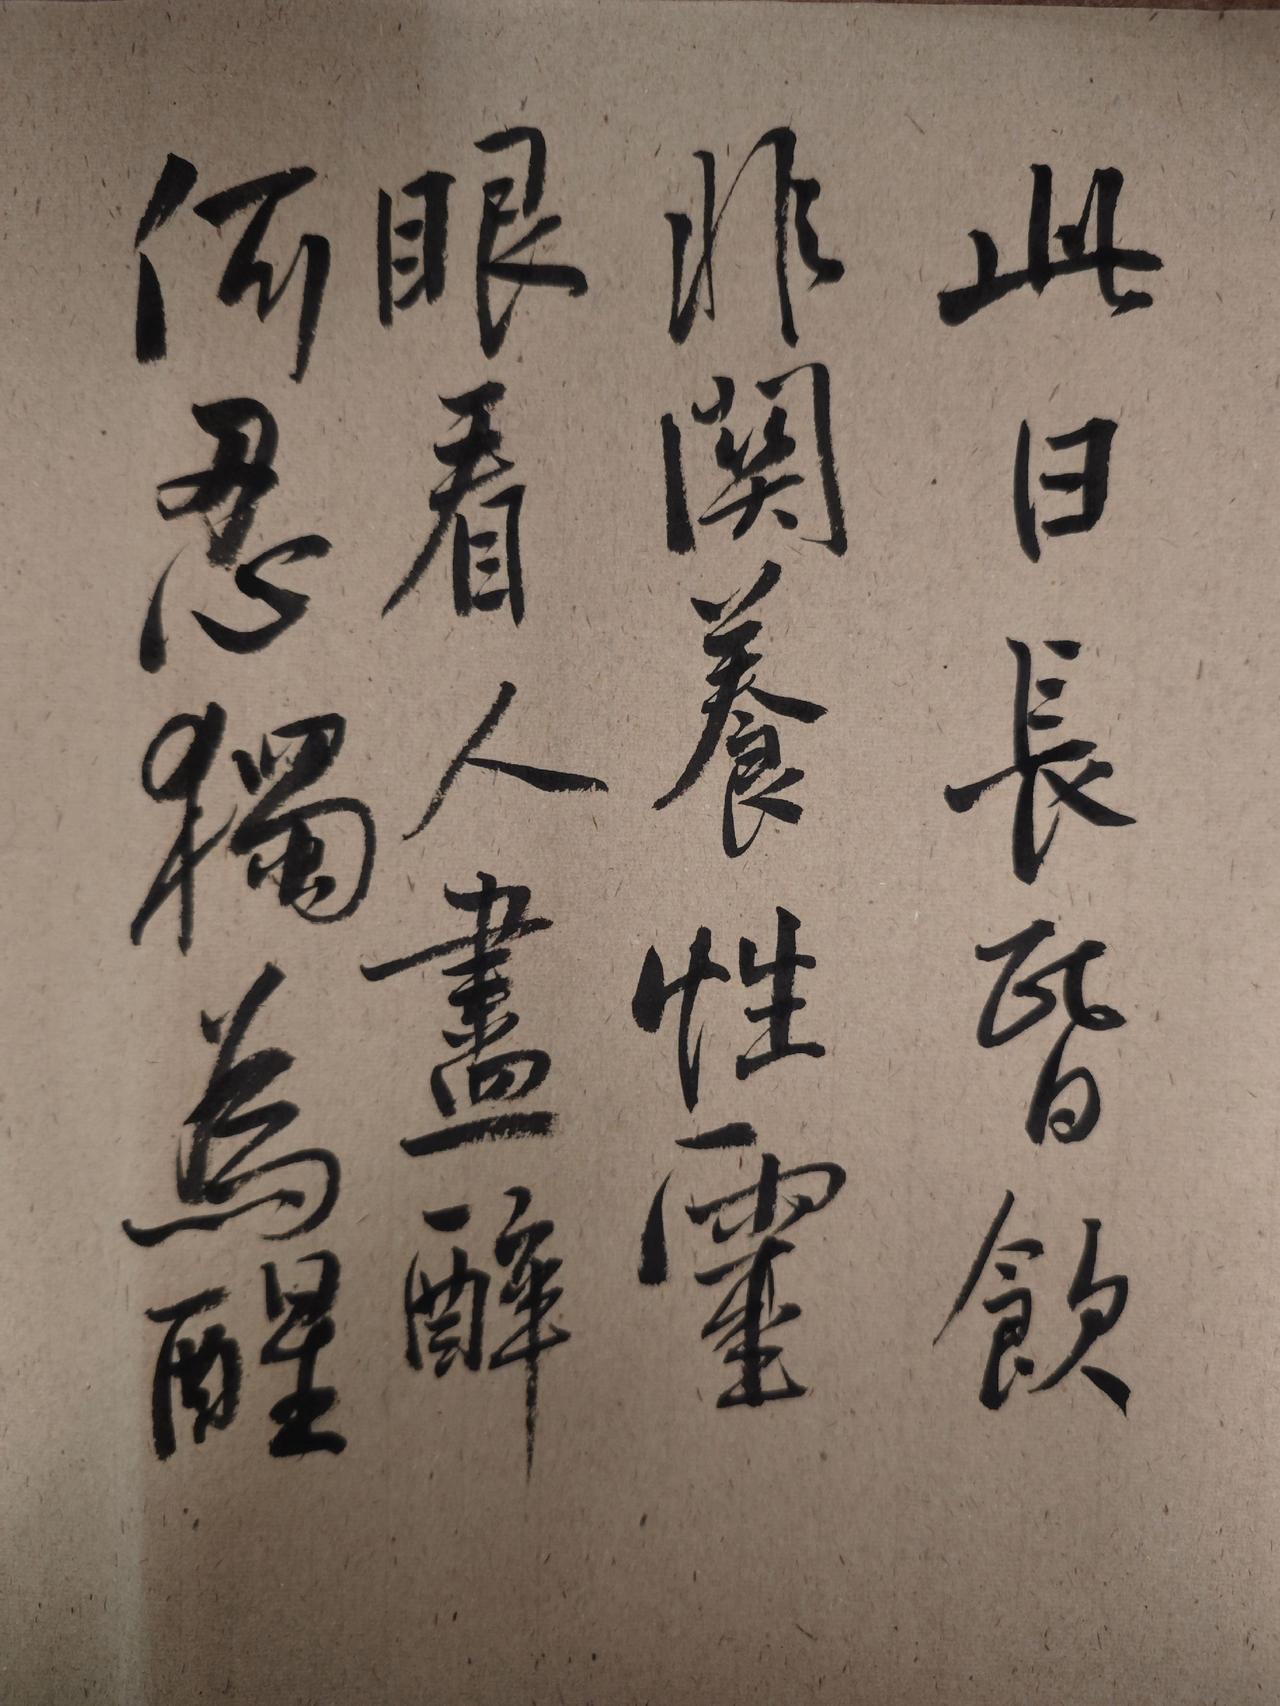 此日長昏飲
非關養性靈
眼看人盡醉
何忍獨為醒